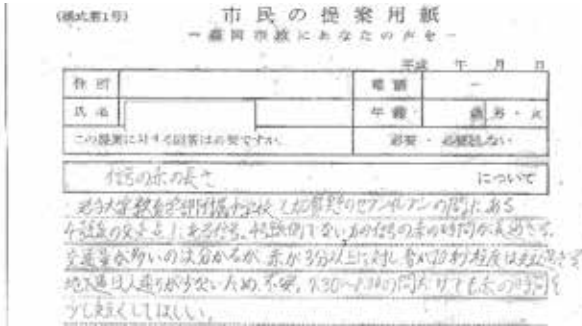 (様式第1号)
市民の提案用紙
－盛岡市政にあなたの声を－
平成 年 月 日
住所
電話 －
氏名
年齢 歳 男・女
この提案に対する回答は必要ですか。
必要・必要としない
信号の赤の長さ について
岩手大学教育学部附属中学校と加賀野のセブンイレブンの間にある
の信号の赤の時間が長すぎる。
交通量が多いのは分かるが、赤が3分以上に対し青が20秒程度は短すぎる
人通りが少ないため、不安。7:30～8:00の間だけでも赤の時間を
少し短くしてほしい。